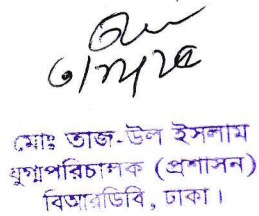 মোঃ তাজ-উল ইসলাম
যুগ্মপরিচালক (প্রশাসন)
বিআরডিবি, ঢাকা।